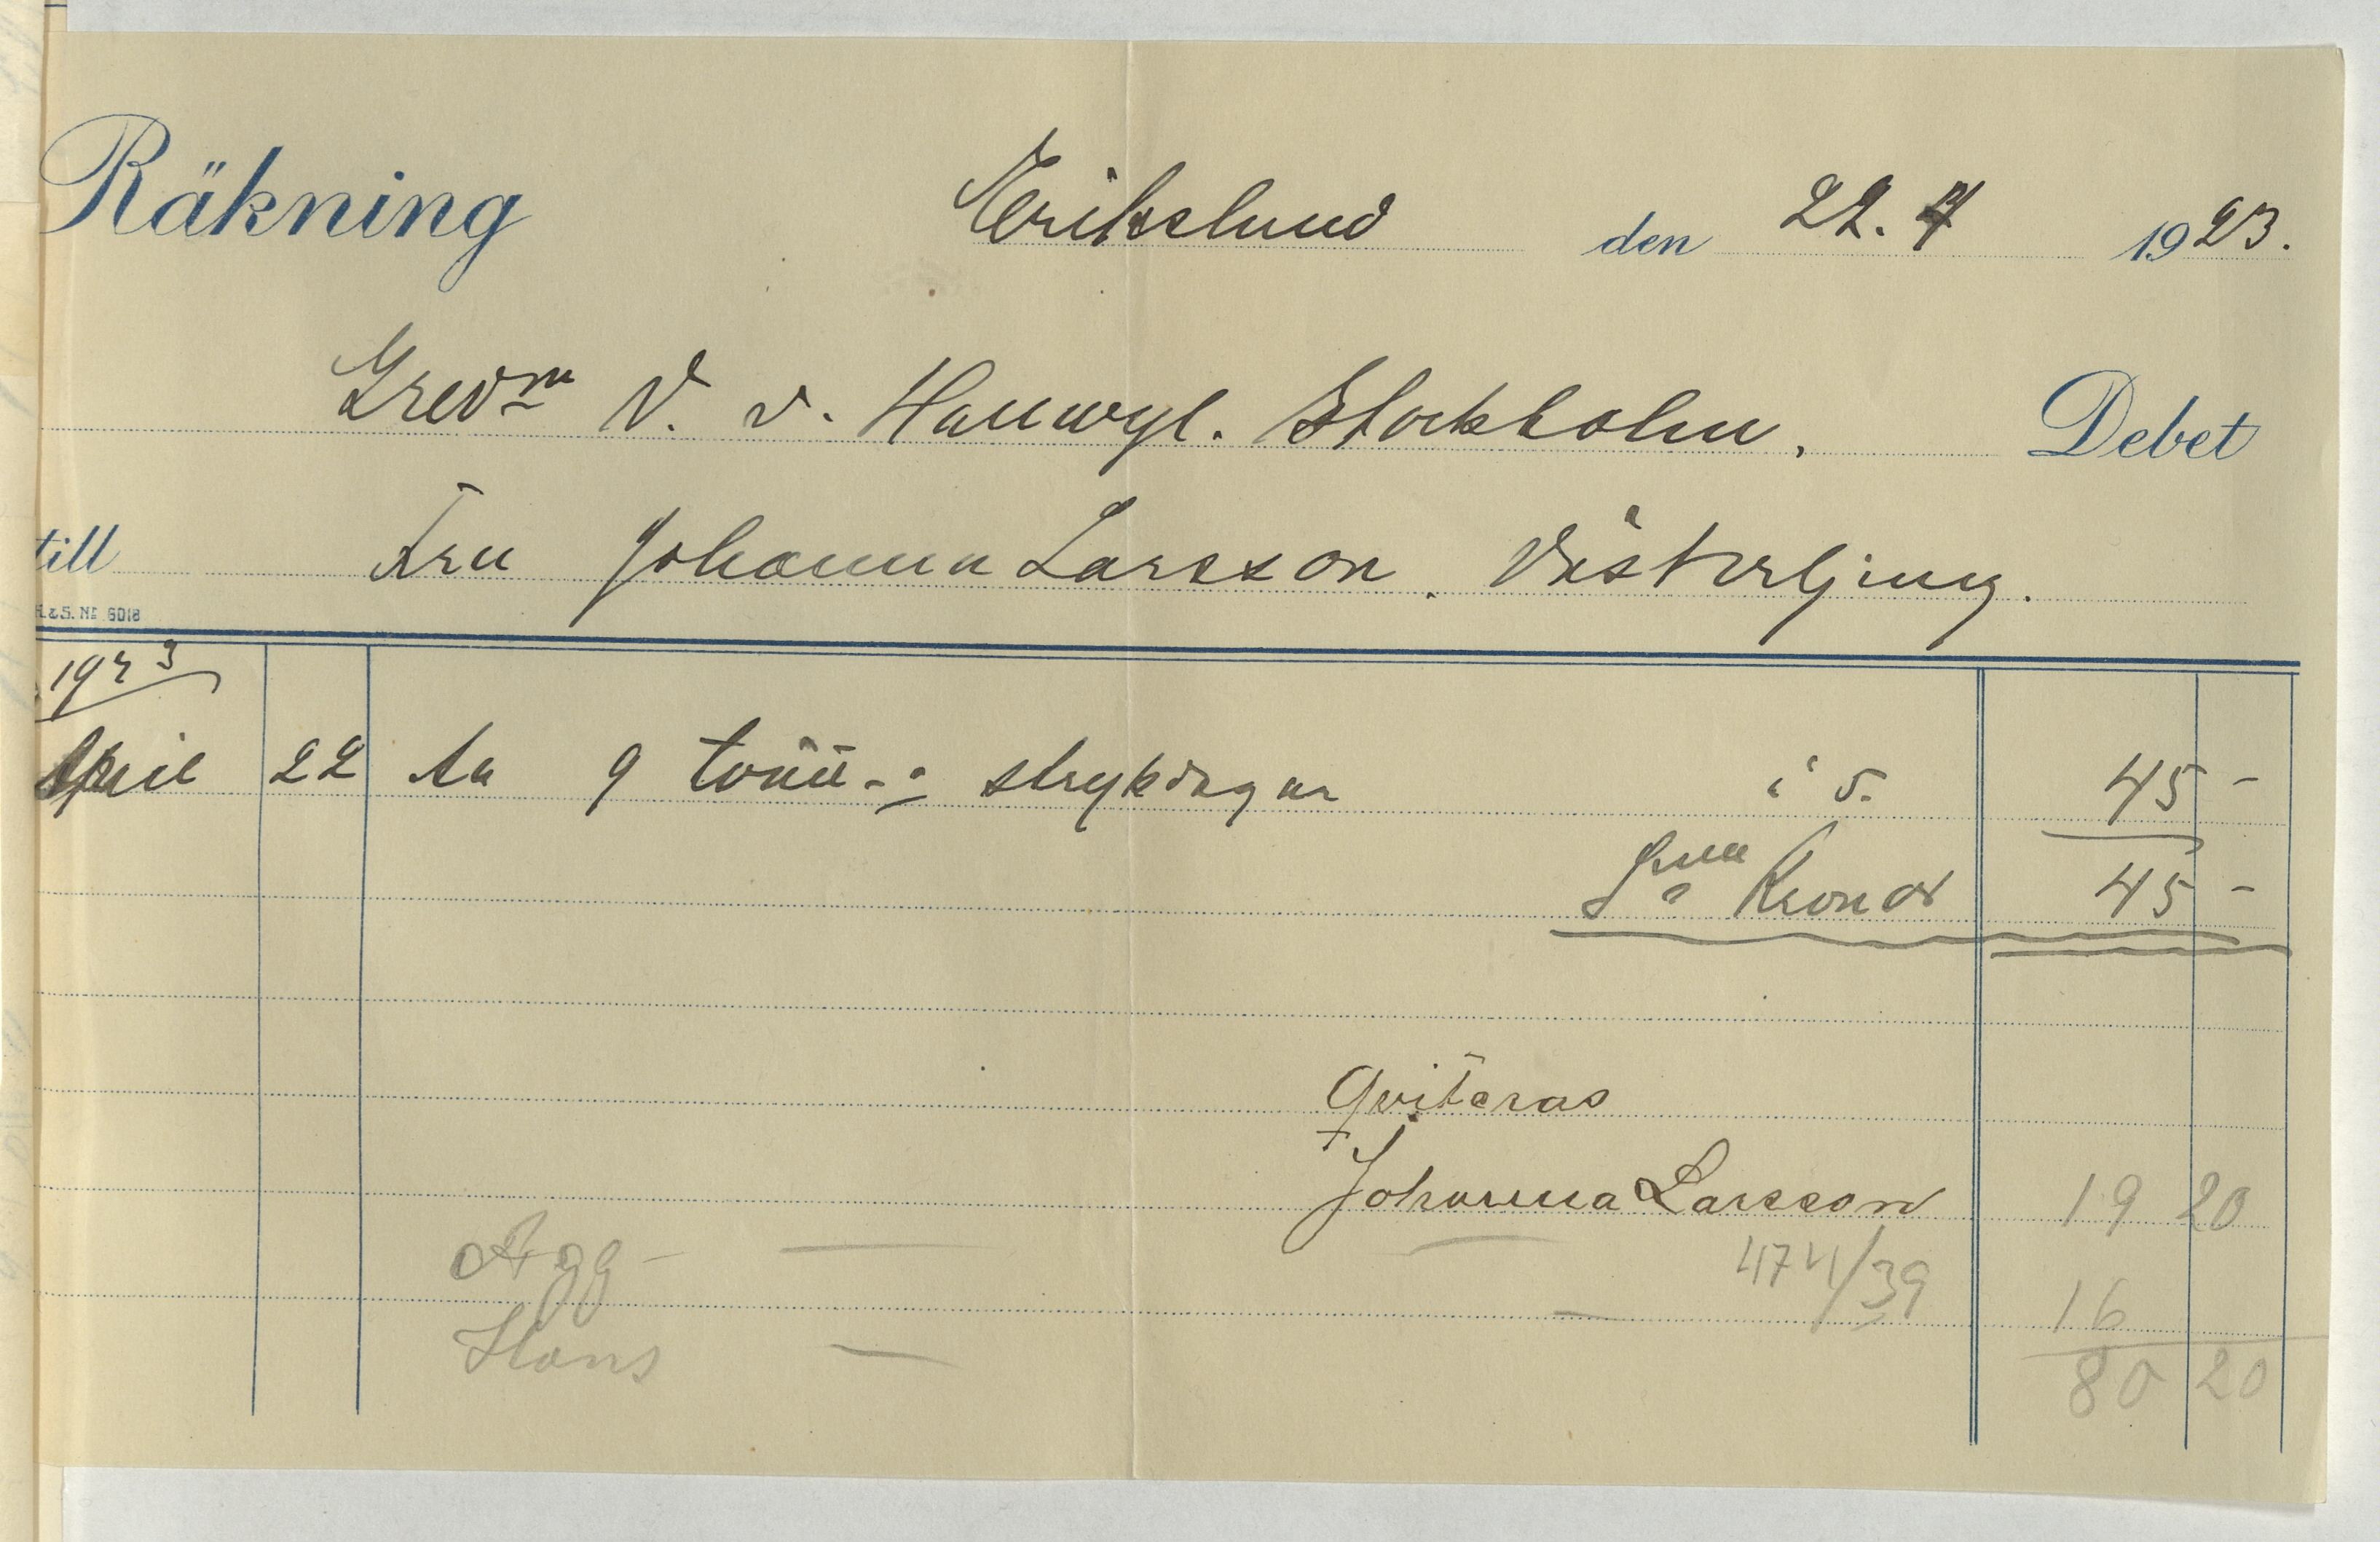 Räkning Erikslund den 22. 4 1923.
Grevn W. v. Hallwyl. Stockholm. Debet
till Fru Johanna Larsson. Västerljung.
H. & S. Nº 6018
1923
April 22 An 9 tvätt- & strykdagar à 5. 45 -
S:a Kronor 45 -
Qviteras
Johanna Larsson 19 20
Ägg - 474/39
Höns 16
80 20